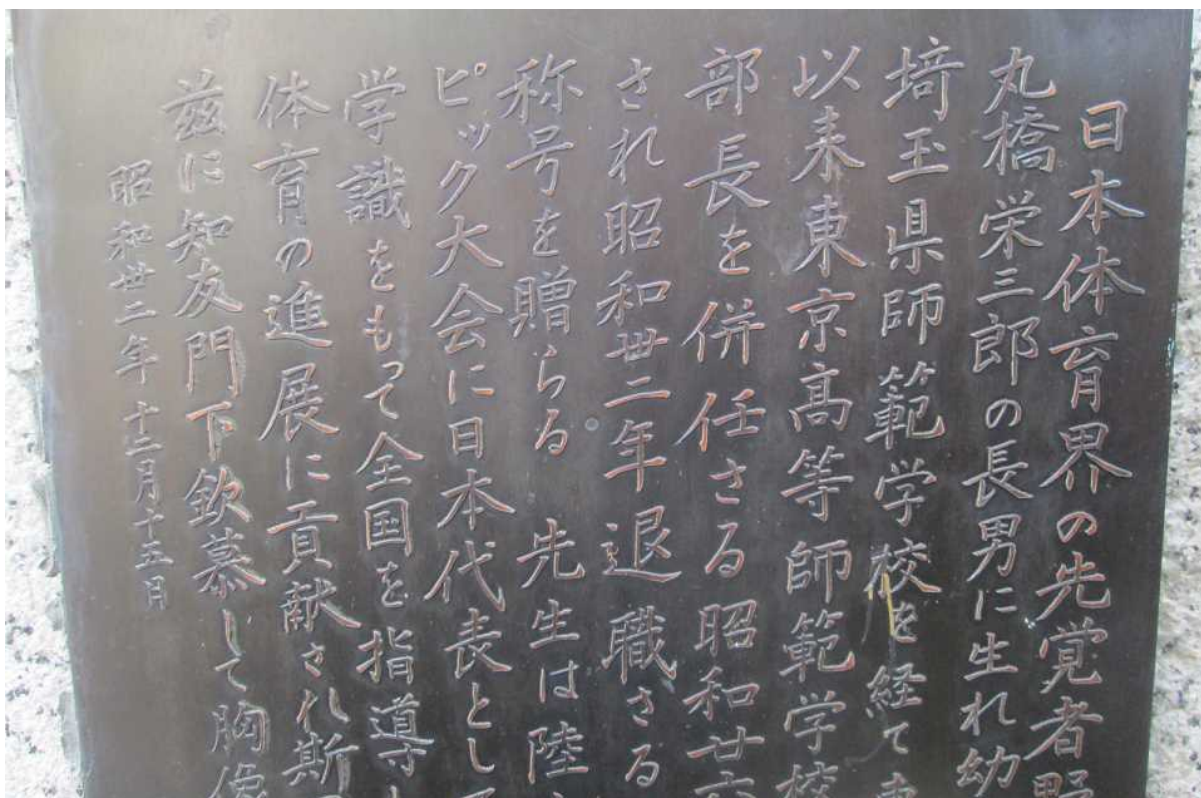 日本体育界の先覚者野
丸橋栄三郎の長男に生れ幼
埼玉県師範学校を経て東
以来東京髙等師範学校
部長を併任さる昭和廿六
され昭和丗二年退職さる
称号を贈らる 先生は陸
ピック大会に日本代表とし
学識をもって全国を指導
体育の進展に貢献され斯
茲に知友門下欽慕して胸像
昭和丗二年 十二月十五日